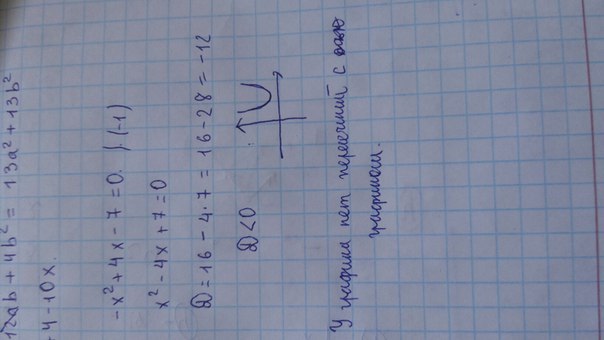 12ab + 4b² = 13a² + 13b²
4 - 10x.
-x² + 4x - 7 = 0. | · (-1)
x² - 4x + 7 = 0
D = 16 - 4 · 7 = 16 - 28 = -12
D < 0
У графика нет пересечний с
графиком.